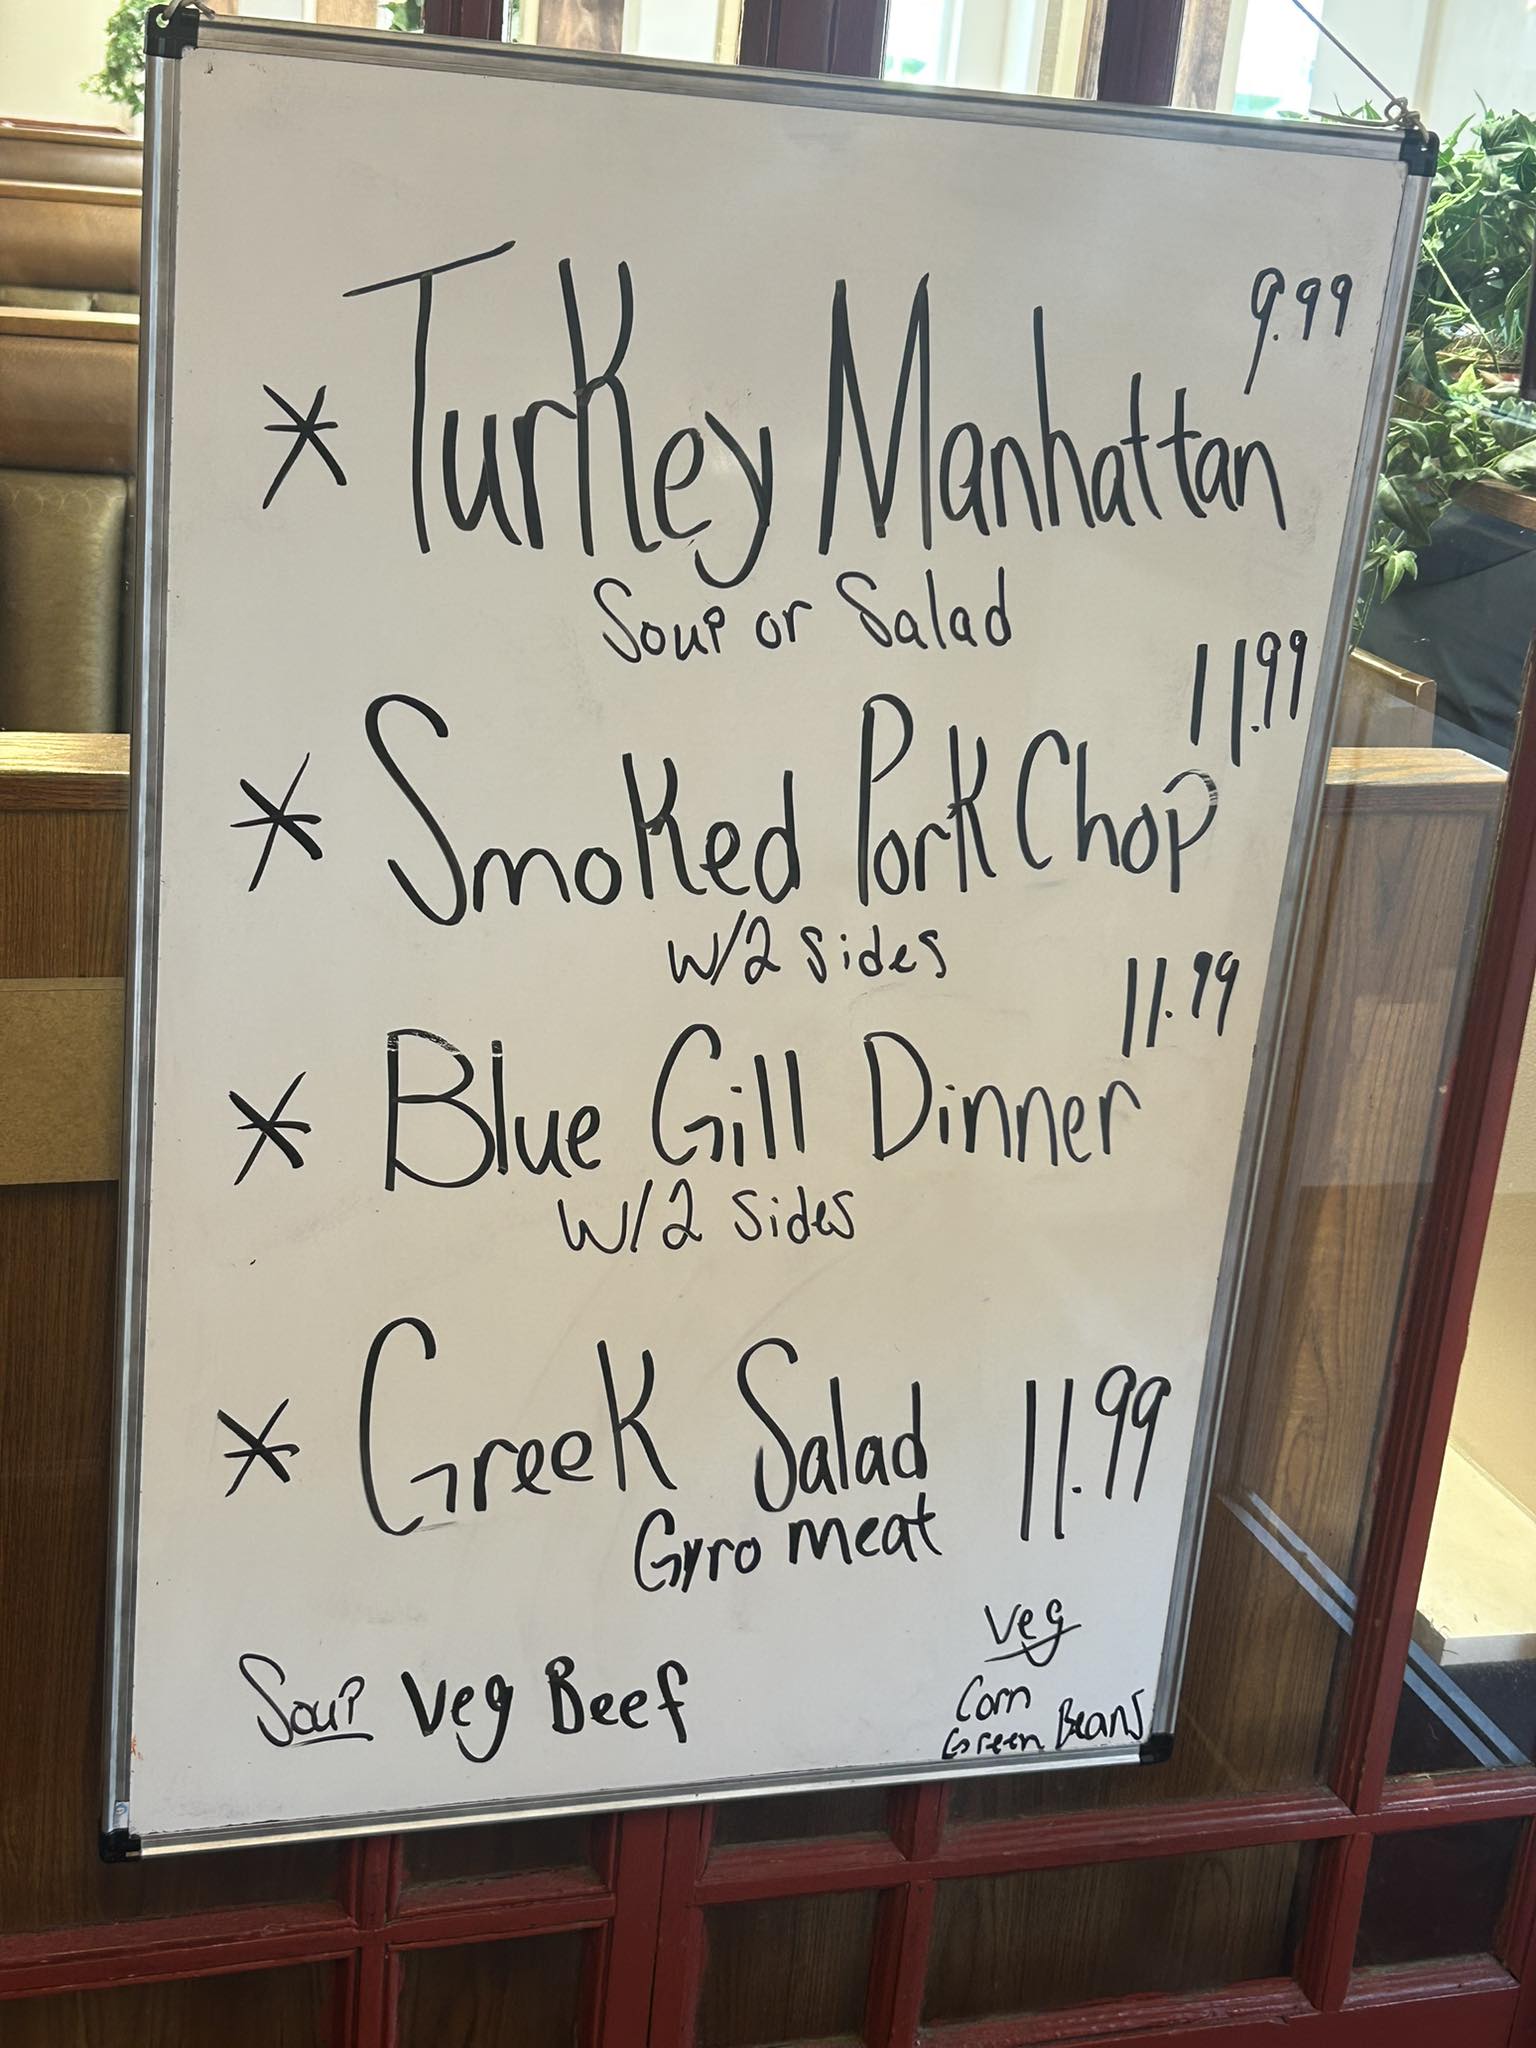 9.99
* Turkey Manhattan
Soup or Salad
11.99
* Smoked Pork Chop
w/2 sides
11.99
* Blue Gill Dinner
w/2 sides
* Greek Salad 11.99
Gyro meat
Veg
Soup Veg Beef
Corn
Green Beans